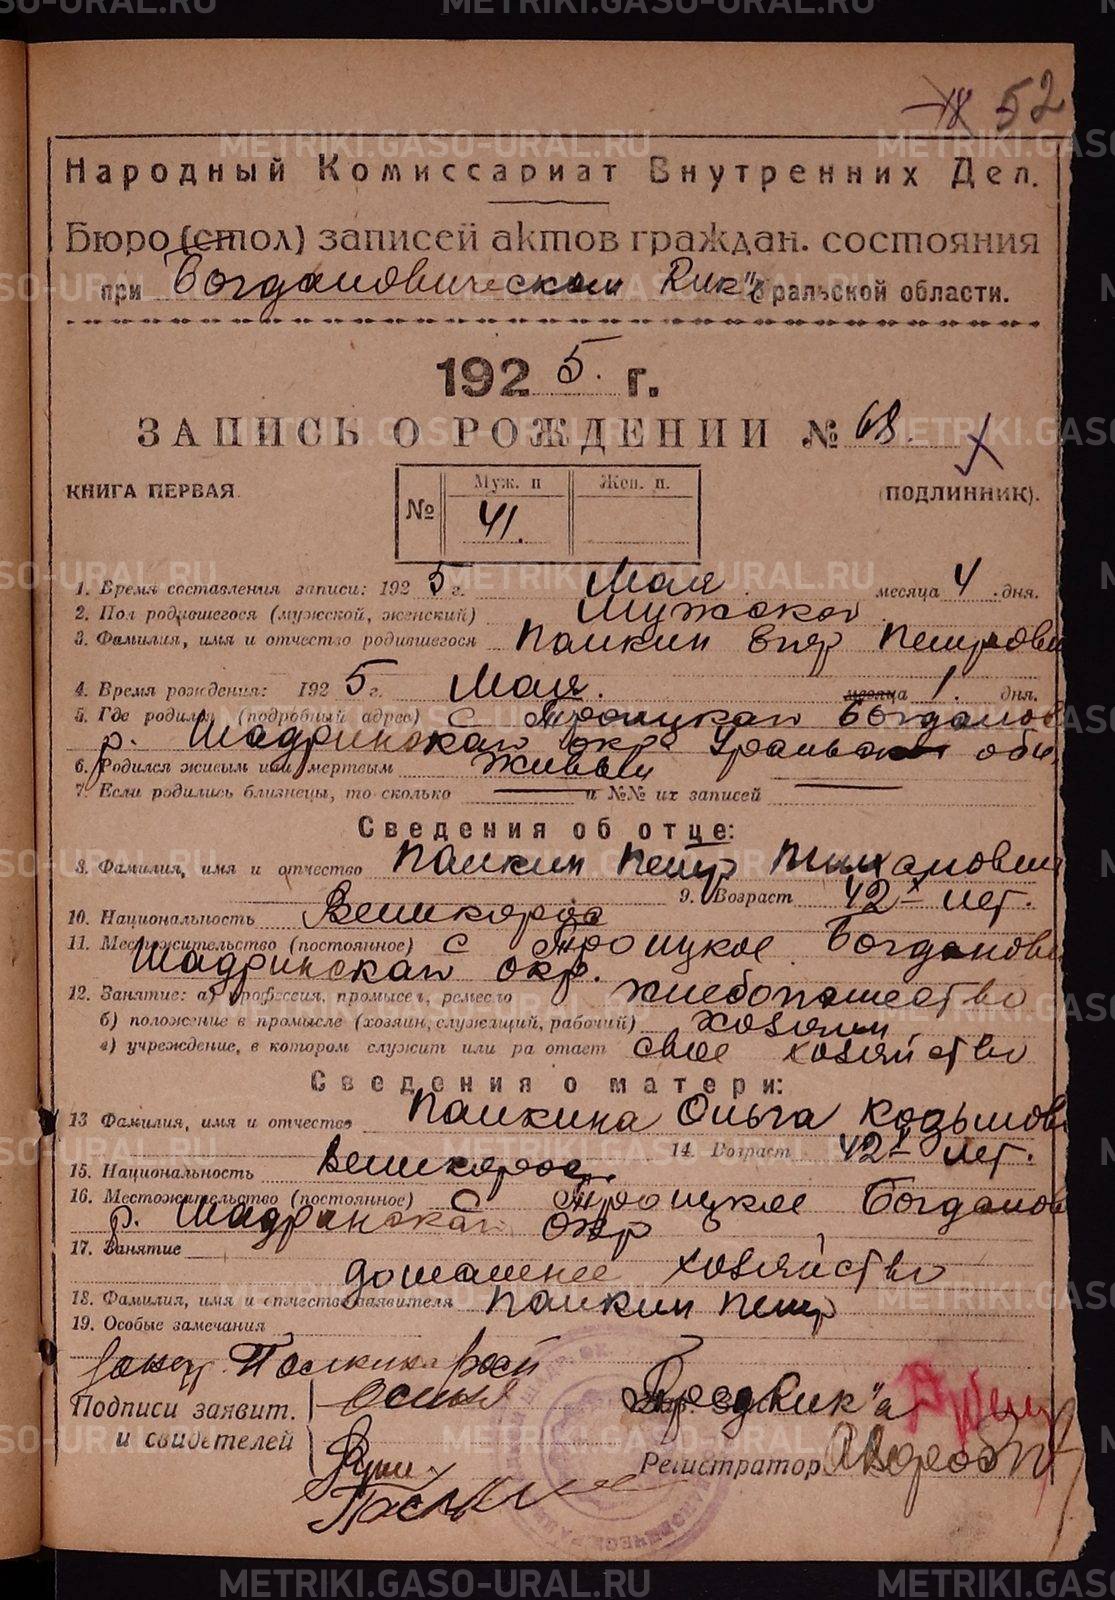 52
Народный Комиссариат Внутренних Дел.
Бюро (стол) записей актов граждан. состояния
при Богдановическом Рик"е Уральской области.
1925. г.
ЗАПИСЬ О РОЖДЕНИИ № 68.
КНИГА ПЕРВАЯ.
(ПОДЛИННИК).
№ Муж. п Жен. п.
41.
1. Время составления записи: 1925 г. Мая месяца 4 дня.
2. Пол родившегося (мужской, женский) Мужской
3. Фамилия, имя и отчество родившегося Палкин Петрови
4. Время рождения: 1925 г. Мая. месяца 1. дня.
5. Где родился (подробный адрес) С Троицкой Богданов
р. Шадринскай окр Уральской обл,
6. Родился живым или мертвым живым
7. Если родились близнецы, то сколько и №№ их записей
Сведения об отце:
8. Фамилия, имя и отчество Палкин Петр
9. Возраст 42х лет.
10. Национальность Великоросс
11. Местожительство (постоянное) С Троицкое Богданови
Шадринскай окр.
12. Занятие: а) профессия, промысел, ремесло хлебопашество
б) положение в промысле (хозяин, служащий, рабочий) хозяин
в) учреждение, в котором служит или ра отает свое хозяйство
Сведения о матери:
13 Фамилия, имя и отчество Палкина Ольга Козьмов
14. Возраст 42х лет.
15. Национальность Великоросс.
16. Местожительство (постоянное) С Троицкое Богданов
р. Шадринскай окр
17. Занятие
домашнее хозяйство
18. Фамилия, имя и отчество заявителя Палкин Петр
19. Особые замечания
Подписи заявит.
и свидетелей
Регистратор
METRIKI.GASO-URAL.RU